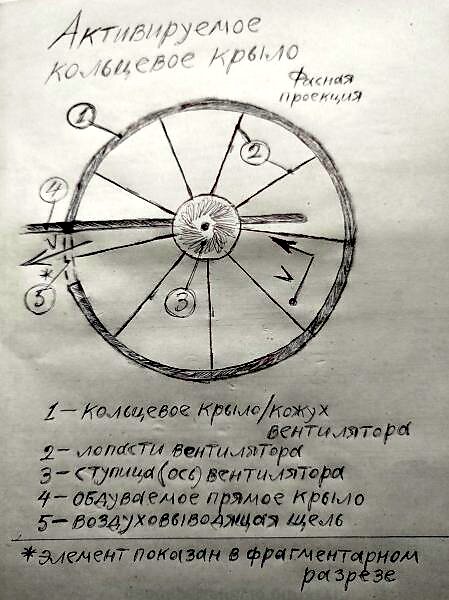 Активируемое
кольцевое крыло
Фасная
проекция
1
2
4
V
*
5
3
V
1 – кольцевое крыло/кожух
вентилятора
2 – лопасти вентилятора
3 – ступица (ось) вентилятора
4 – обдуваемое прямое крыло
5 – воздуховыводящая щель
* Элемент показан в фрагментарном
разрезе